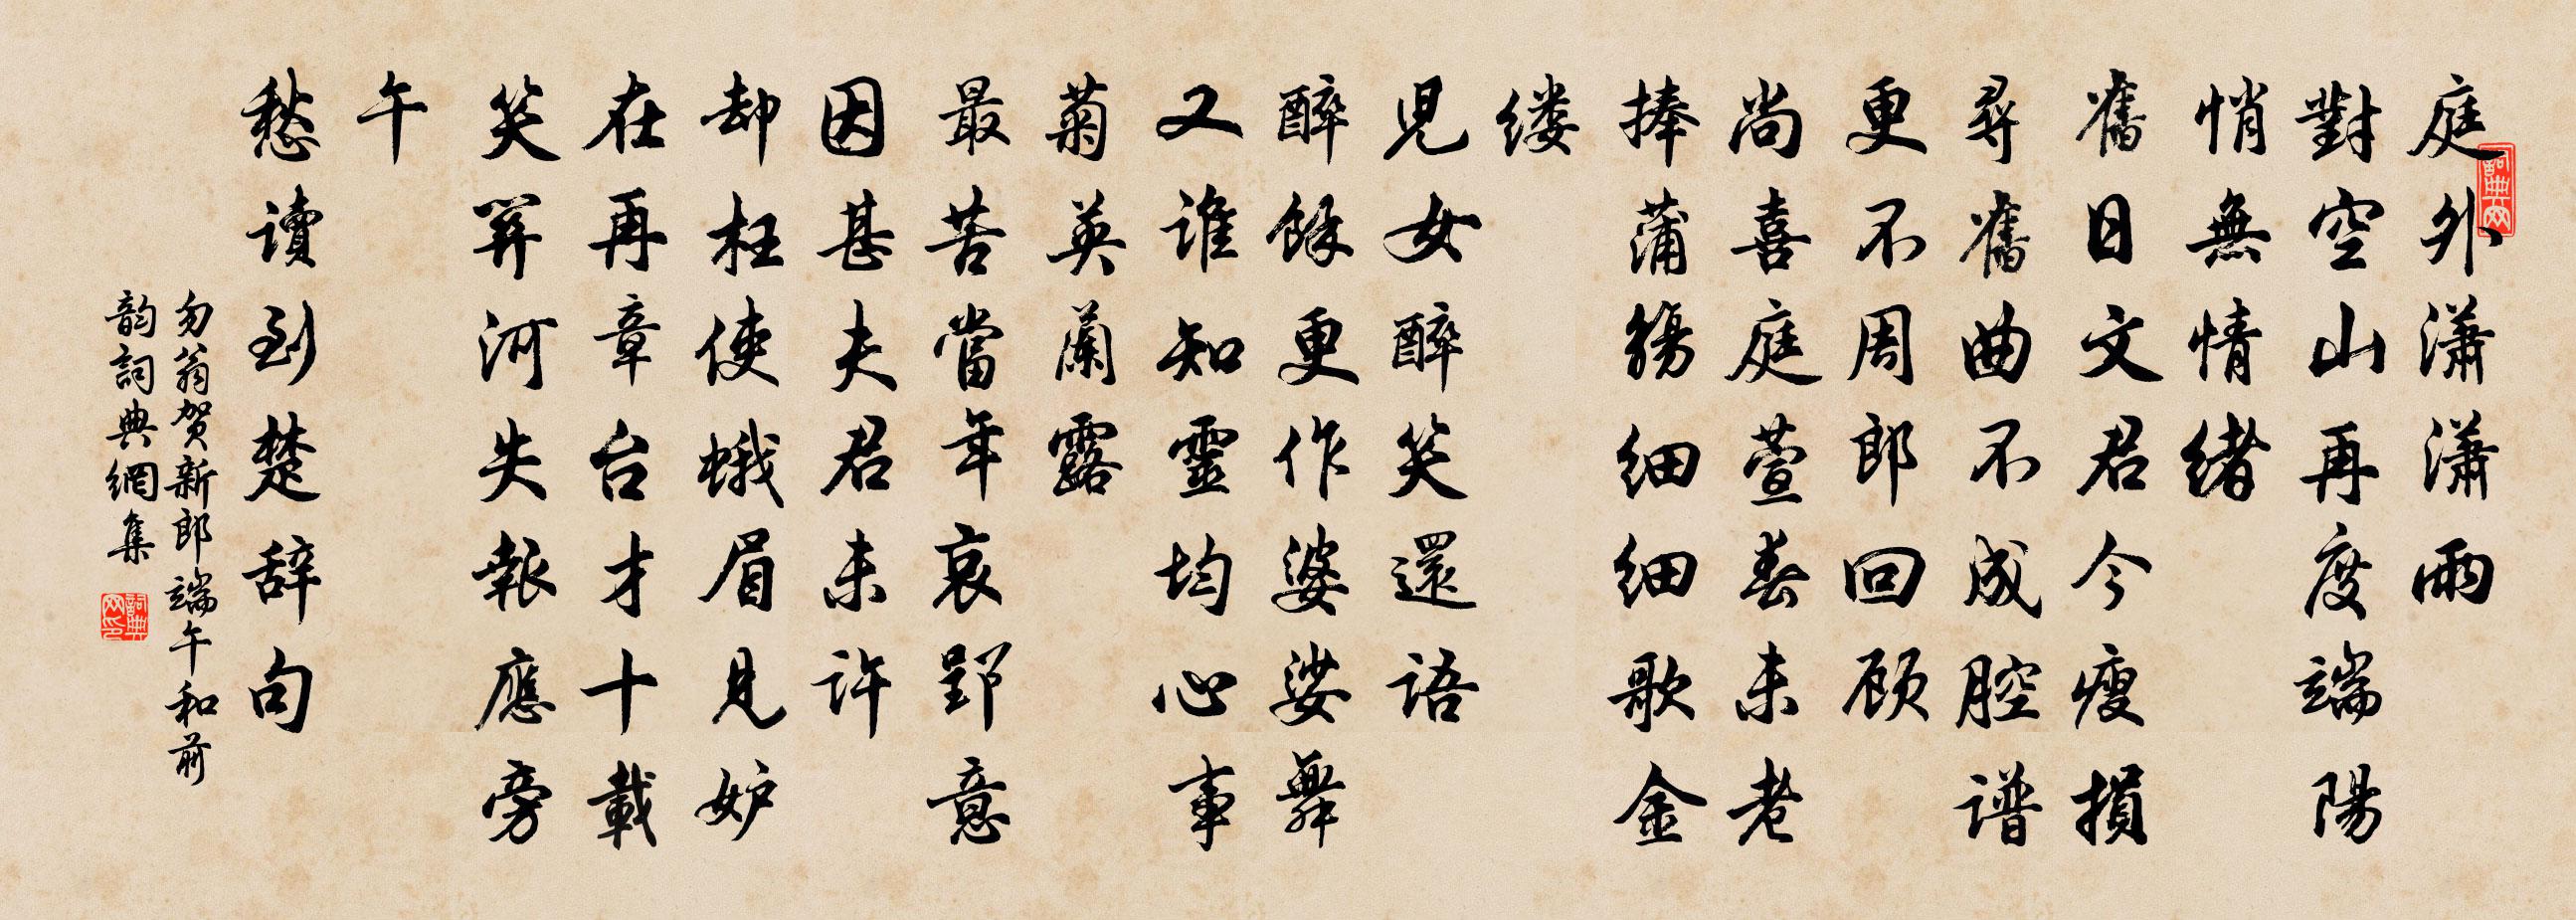 庭外潇潇雨
對空山再度端陽
悄無情緒
舊日文君今瘦損
尋舊曲不成腔谱
更不周郎回顾
尚喜庭萱春未老
捧蒲觞细细歌金
缕
児女醉笑還語
醉餘更作婆娑舞
又谁知靈均心事
菊英蘭露
最苦當年哀郢意
因甚夫君未许
却枉使蛾眉見妒
在再章台才十載
笑筭河失報應旁
午
愁读到楚辞句
勿翁贺新郎端午和前
韵詞典網集
詞典网
詞典网印